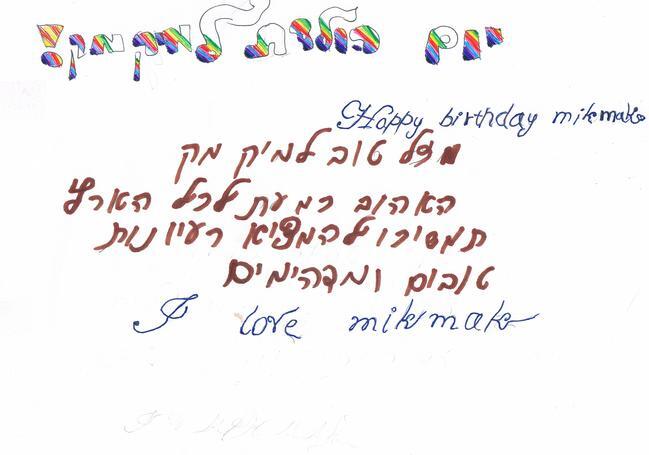 יום הולדת למיק מק!
Happy birthday mikmake
מזל טוב למיק מק
האהוב כמעת לכל הארץ
תמשיכו להמציא רעיונות
טובים ומדהימים
I love mikmake